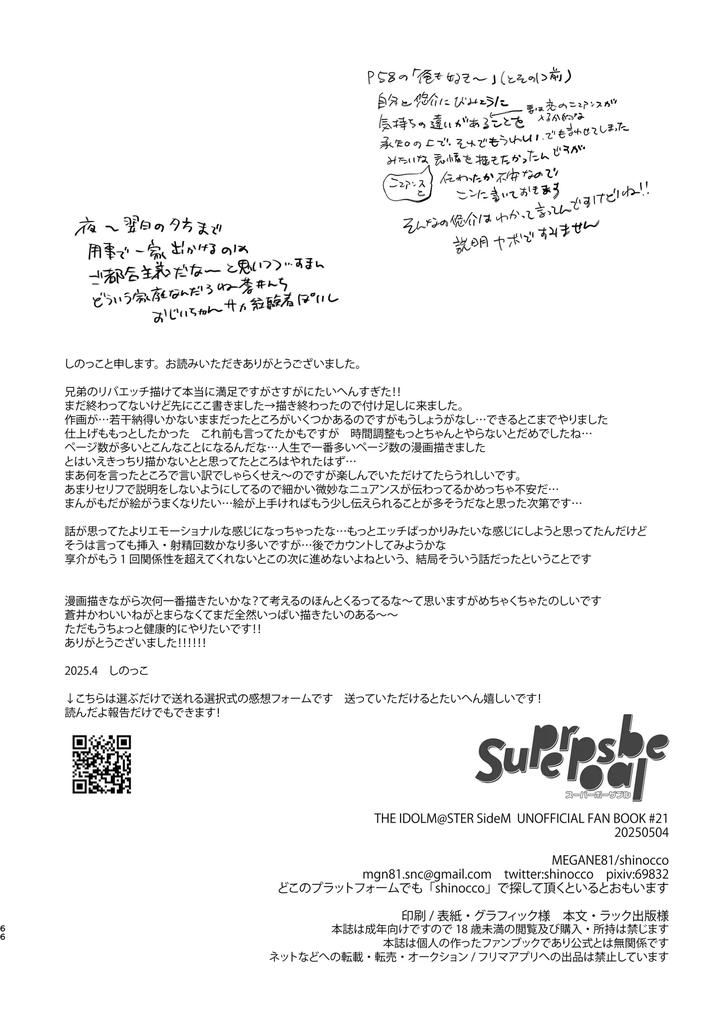 P58の「俺も好き〜」(とその前)
自分と悠介にびみょうに
気持ちの違いがあることを
承知の上で、それでもうれしい、でも言わせてしまった
みたいな表情を描きたかったんですが
ニュアンスと
伝わったか不安なので
ここに書いておきます
そんなの悠介はわかって言ってんですけどね!!
説明ヤボですみません
夜〜翌日の夕方まで
用事で一家出かけるのは
ご都合主義だな〜と思いつつ…すまん
どういう家庭なんだろね蒼井んち
おじいちゃんサッカ経験者ぽいし
しのっこと申します。お読みいただきありがとうございました。
兄弟のリバエッチ描けて本当に満足ですがさすがにたいへんすぎた!!
まだ終わってないけど先にここ書きました→描き終わったので付け足しに来ました。
作画が…若干納得いかないままだったところがいくつかあるのですがもうしょうがなし…できるとこまでやりました
仕上げももっとしたかった　これ前も言ってたかもですが　時間調整もっとちゃんとやらないとだめでしたね…
ページ数が多いとこんなことになるんだな…人生で一番多いページ数の漫画描きました
とはいえきっちり描かないとと思ってたところはやれたはず…
まあ何を言ったところで言い訳でしゃらくせえ〜のですが楽しんでいただけてたらうれしいです。
あまりセリフで説明をしないようにしてるので細かい微妙なニュアンスが伝わってるかめっちゃ不安だ…
まんがもだが絵がうまくなりたい…絵が上手ければもう少し伝えられることが多そうだなと思った次第です…
話が思ってたよりエモーショナルな感じになっちゃったな…もっとエッチばっかりみたいな感じにしようと思ってたんだけど
そうは言っても挿入・射精回数かなり多いですが…後でカウントしてみようかな
享介がもう1回関係性を超えてくれないとこの次に進めないよねという、結局そういう話だったということです
漫画描きながら次何一番描きたいかな?て考えるのほんとくるってるな〜て思いますがめちゃくちゃたのしいです
蒼井かわいいねがとまらなくてまだ全然いっぱい描きたいのある〜〜
ただもうちょっと健康的にやりたいです!!
ありがとうございました!!!!!!
2025.4　しのっこ
↓こちらは選ぶだけで送れる選択式の感想フォームです　送っていただけるとたいへん嬉しいです!
読んだよ報告だけでもできます!
スーパーポーザブル
THE IDOLM@STER SideM UNOFFICIAL FAN BOOK #21
20250504
MEGANE81/shinocco
mgn81.snc@gmail.com　twitter:shinocco　pixiv:69832
どこのプラットフォームでも「shinocco」で探して頂くといるとおもいます
印刷/表紙・グラフィック様　本文・ラック出版様
本誌は成年向けですので18歳未満の閲覧及び購入・所持は禁じます
本誌は個人の作ったファンブックであり公式とは無関係です
ネットなどへの転載・転売・オークション/フリマアプリへの出品は禁止しています
66